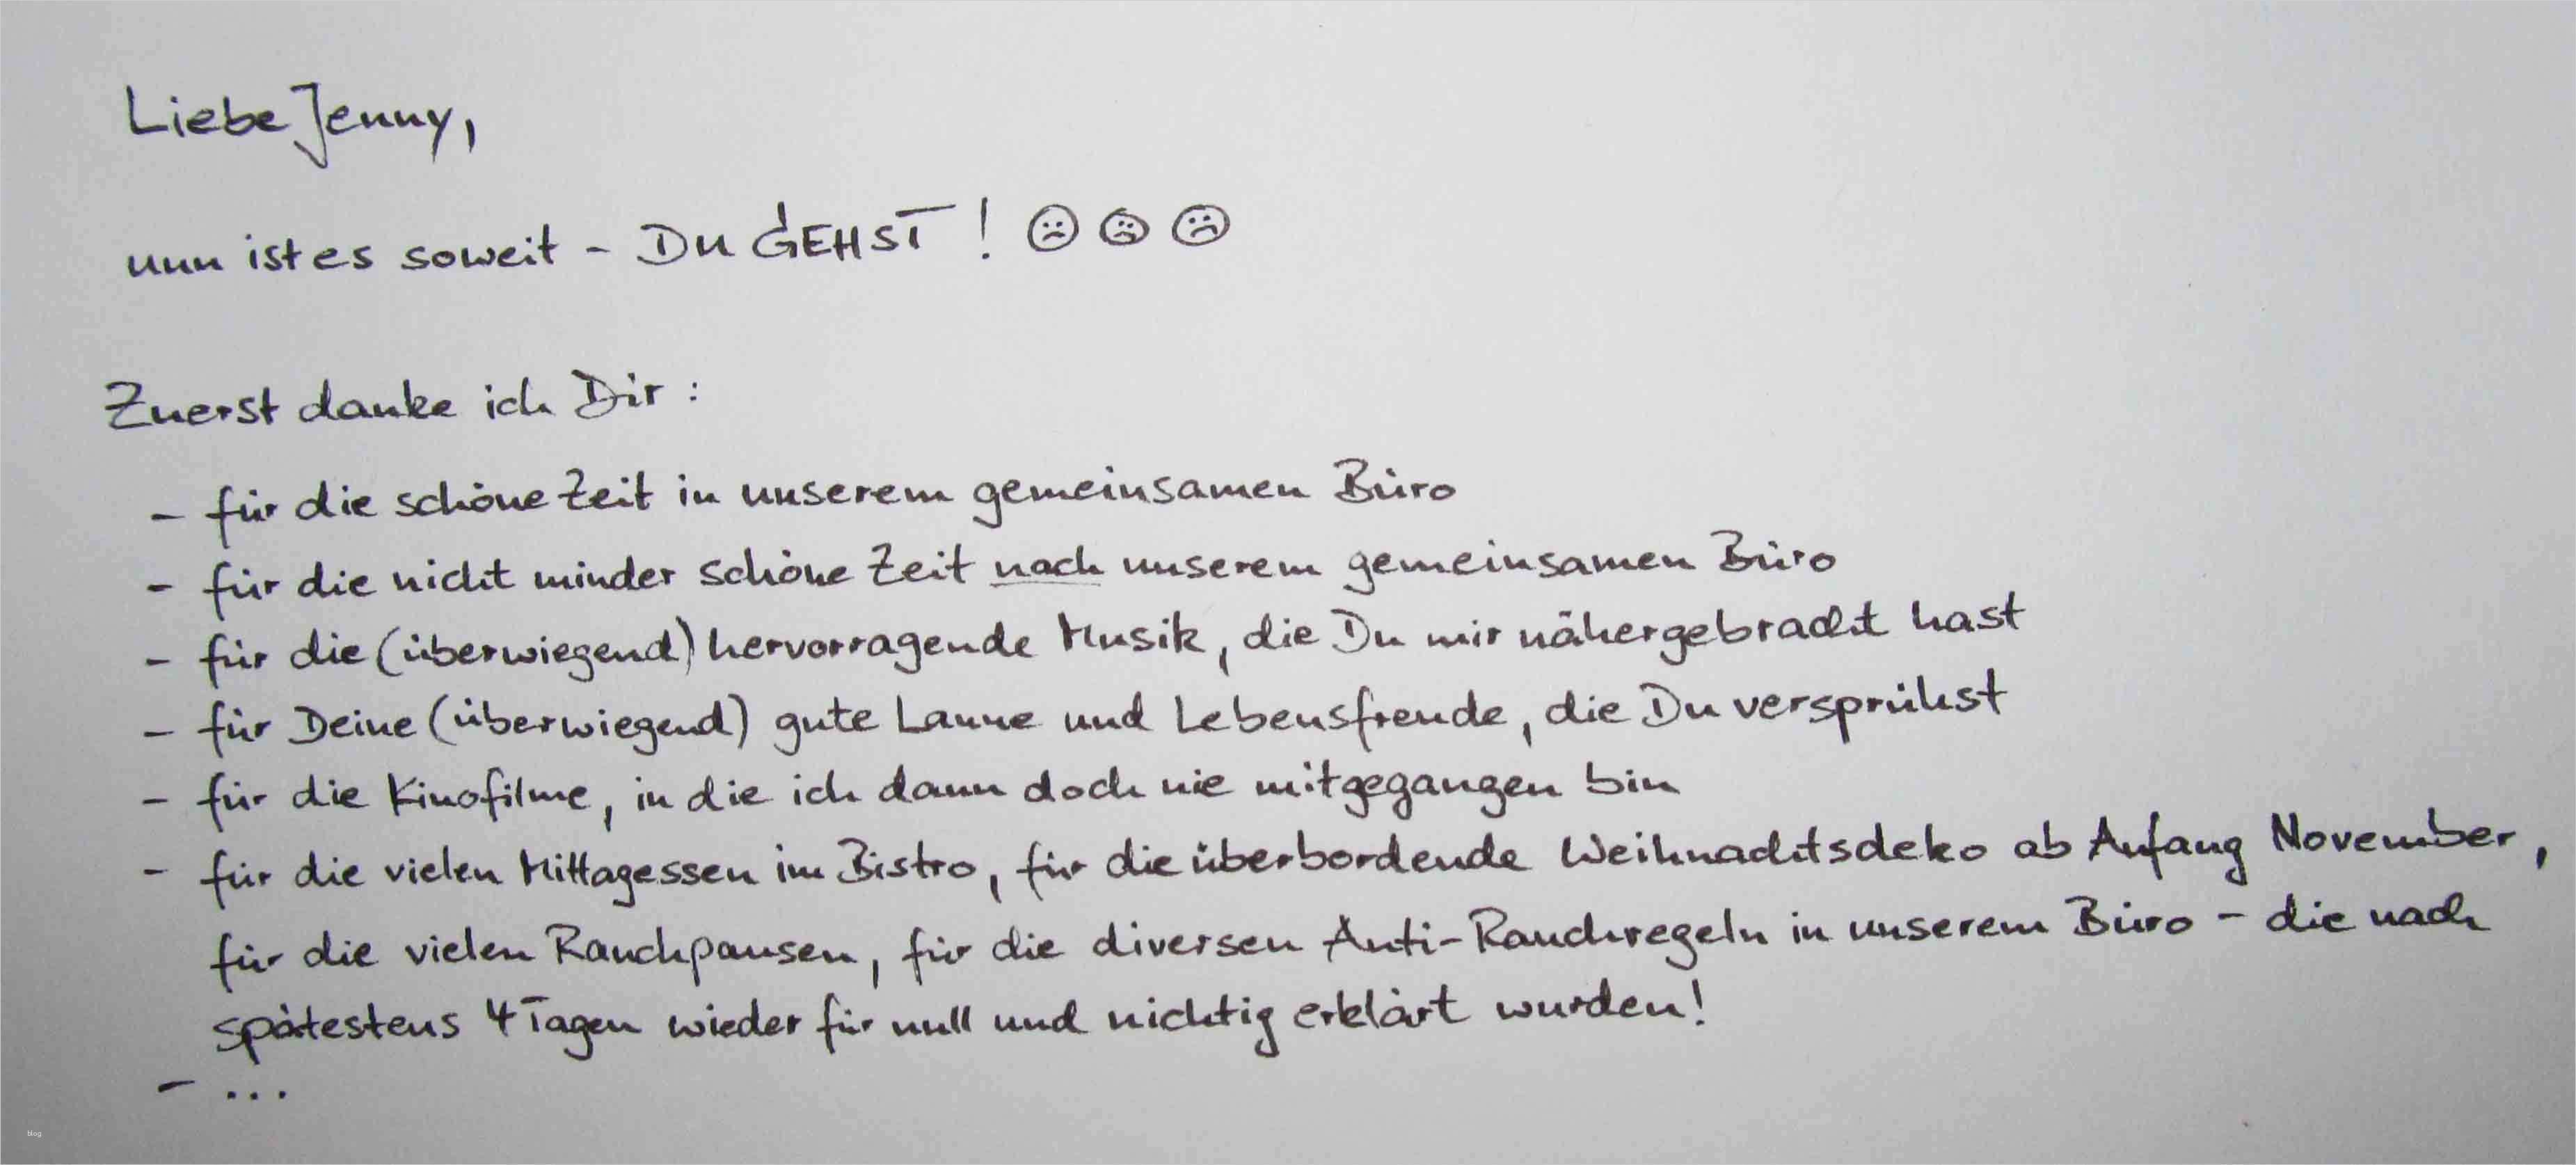 Liebe Jenny,
nun ist es soweit - DU GEHST! ☹ ☹ ☹
Zuerst danke ich Dir:
- für die schöne Zeit in unserem gemeinsamen Büro
- für die nicht minder schöne Zeit nach unserem gemeinsamen Büro
- für die (überwiegend) hervorragende Musik, die Du mir nähergebracht hast
- für Deine (überwiegend) gute Laune und Lebensfreude, die Du versprühst
- für die Kinofilme, in die ich dann doch nie mitgegangen bin
- für die vielen Mittagessen im Bistro, für die überbordende Weihnachtsdeko ab Anfang November,
für die vielen Rauchpausen, für die diversen Anti-Rauchregeln in unserem Büro - die nach
spätestens 4 Tagen wieder für null und nichtig erklärt wurden!
- ...
blog